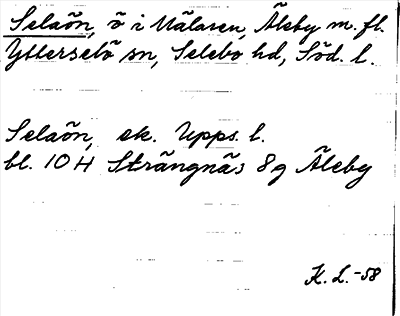 Selaön, ö i Mälaren, Äleby m. fl.
Ytterselö sn, Selebo hd, Söd. l.
Selaön, ek. Upps. l.
bl. 10 H Strängnäs 8g Äleby
K. L. -58